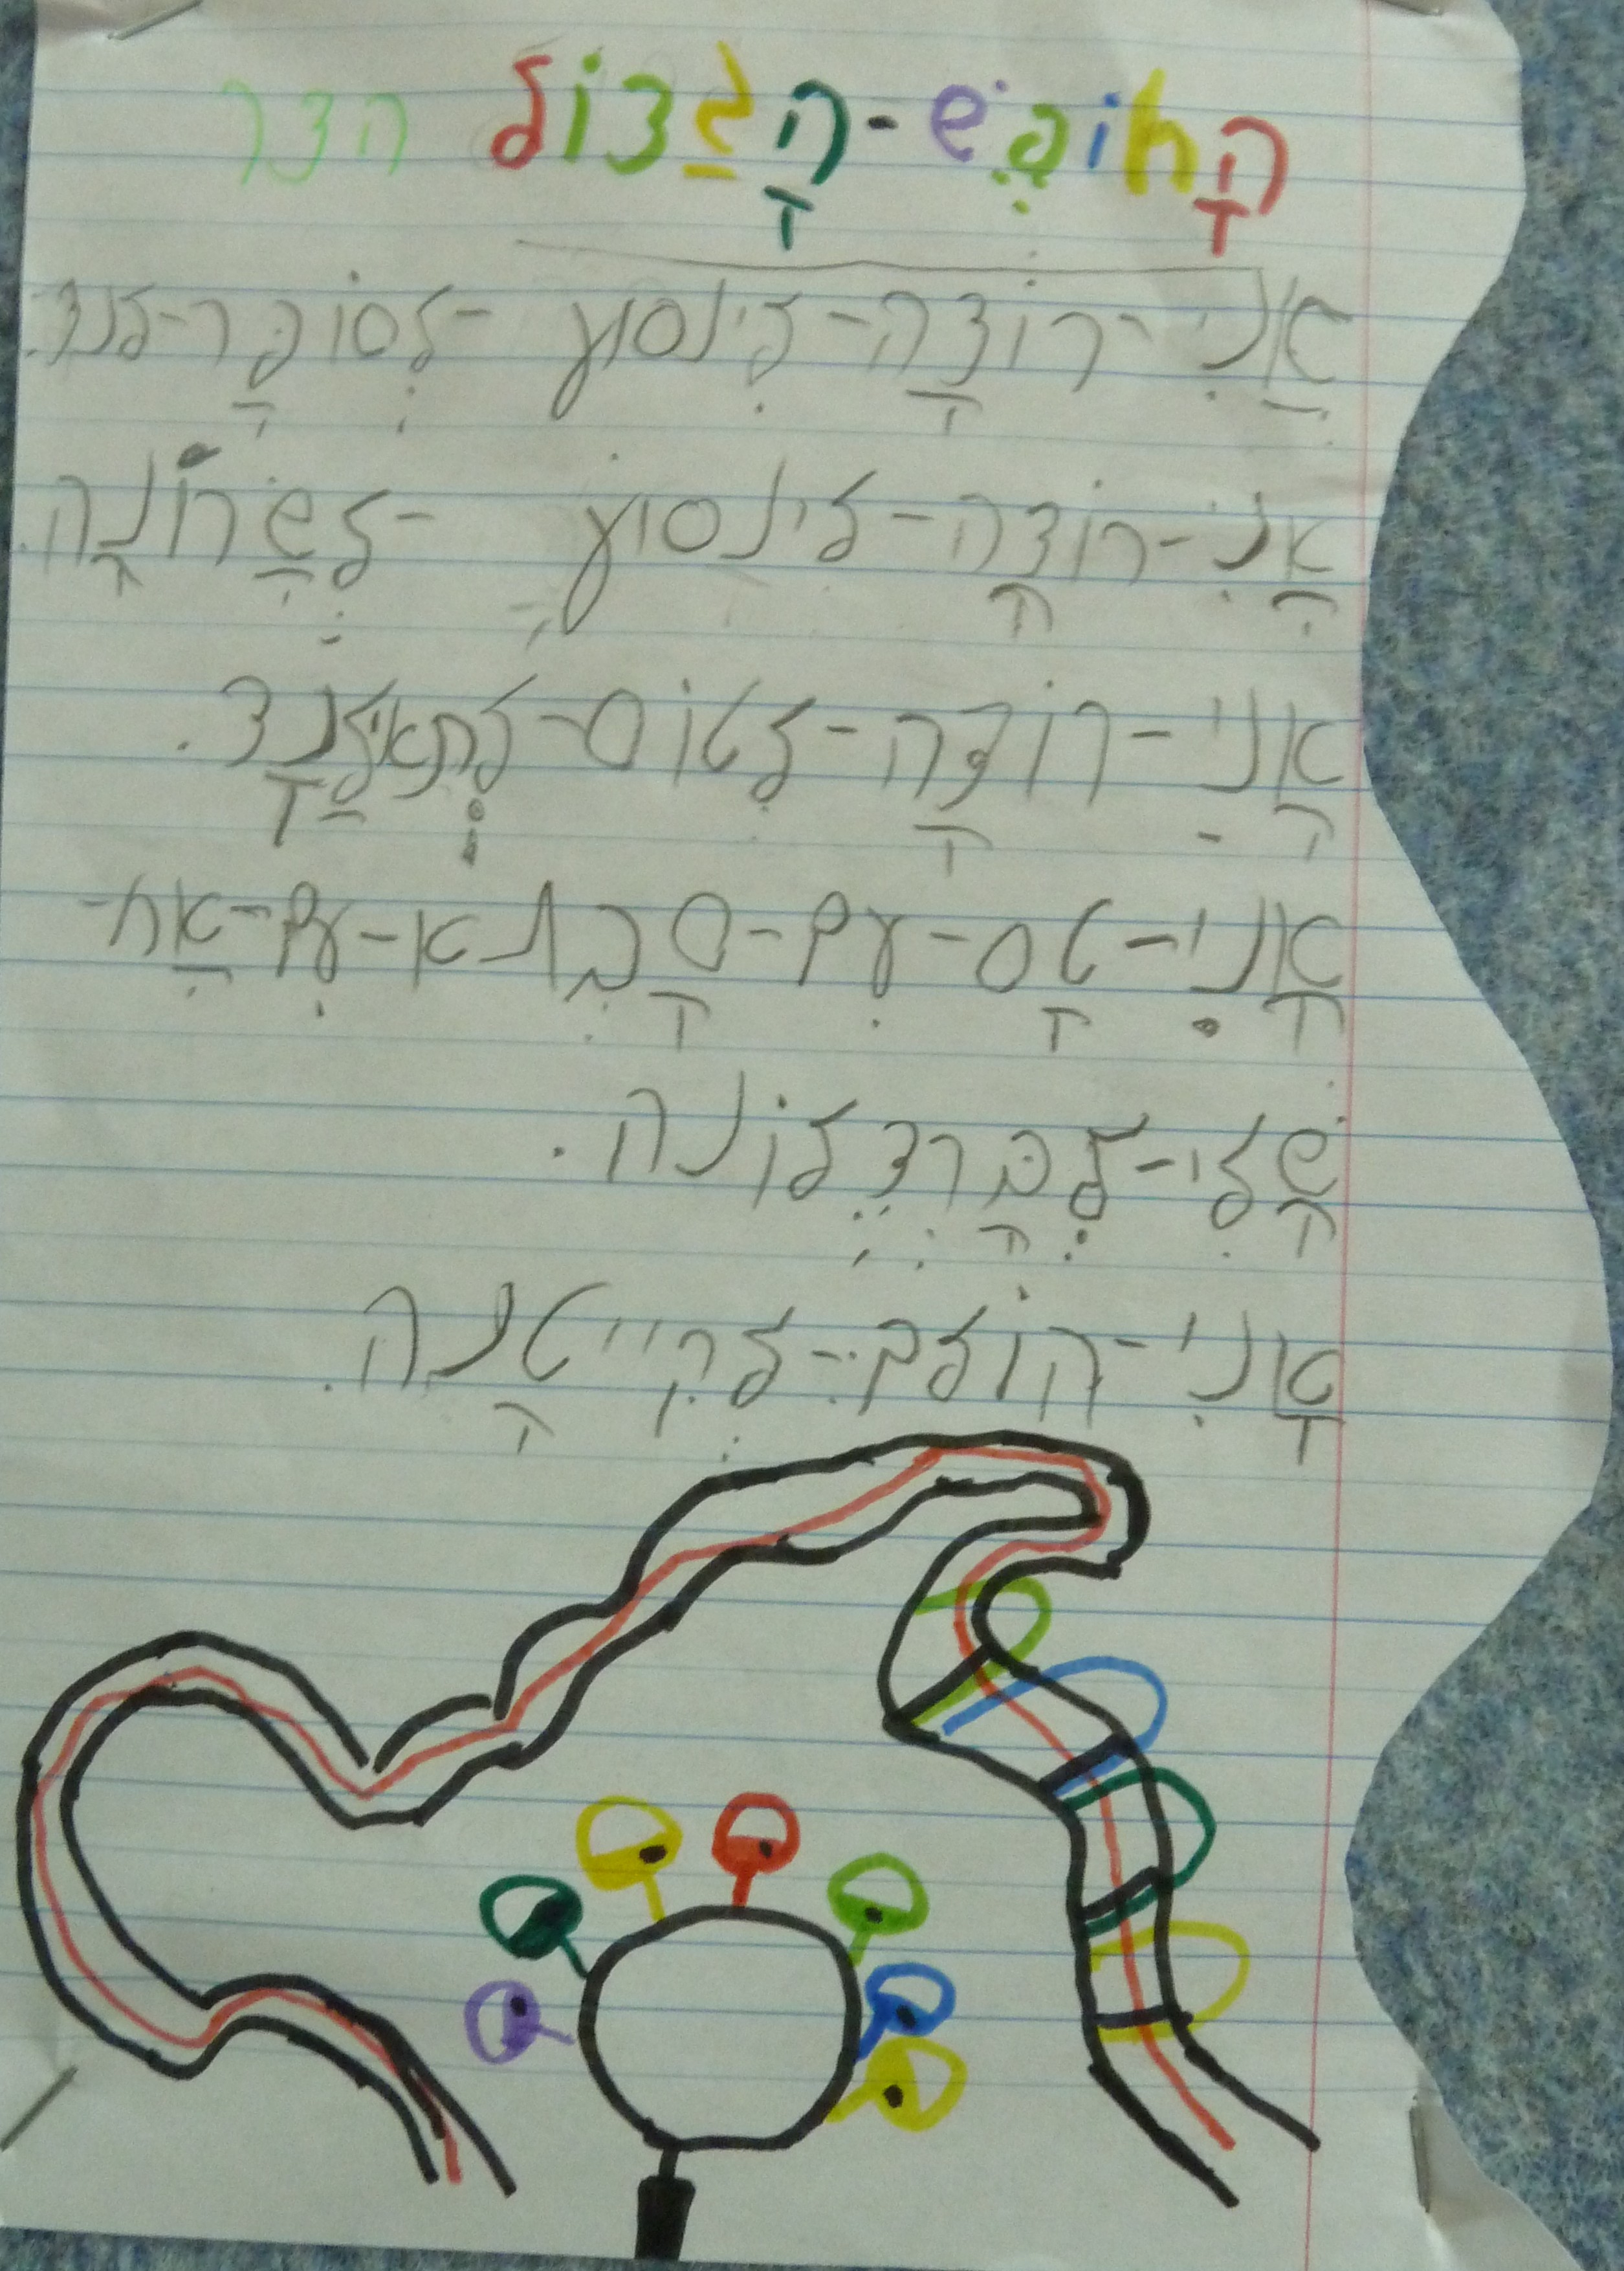 הָחוֹפֶּשׁ-הָגַדוֹל הדר
אַנִי-רוֹצָה-לִינסוע-לְסוֹפָּר-לנד.
אָנִי-רוֹצָה-לינסוע-לְשַׁרוֹנָה.
אָנִי-רוֹצָה-לטוֹס-לְתאילַנָד.
אָנִי-טָס-עִם-סָבְתא-עִם-אַח-
שָׁלִי-לְבָּרצֶלוֹנה.
אָנִי-הוֹלך-לְקייטָנה.